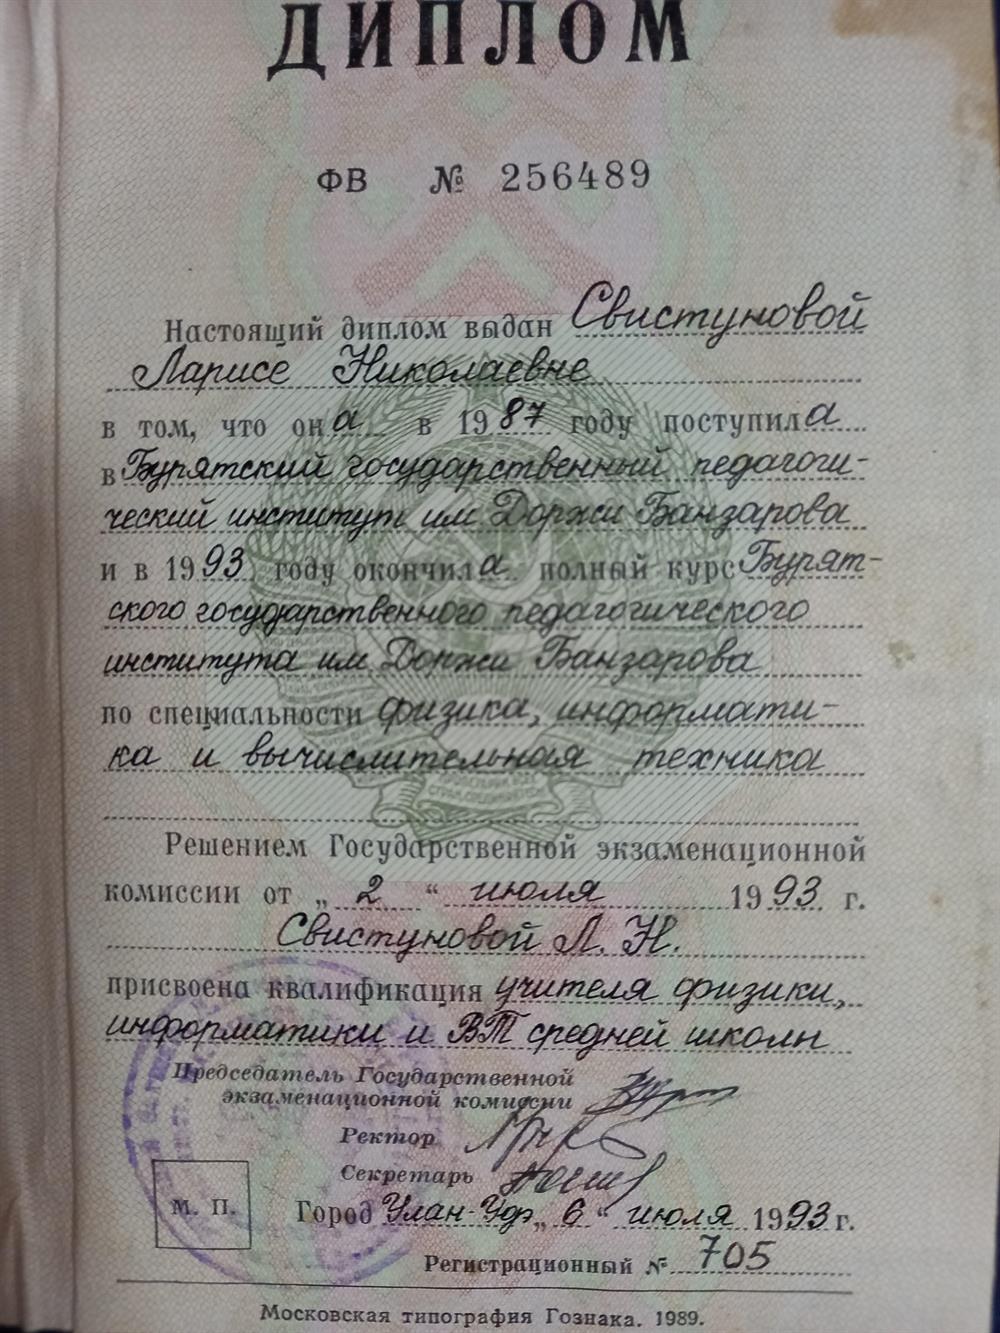 ДИПЛОМ
ФВ № 256489
Настоящий диплом выдан Свистуновой
Ларисе Николаевне
в том, что она в 1987 году поступила
в Бурятский государственный педагоги-
ческий институт им Доржи Банзарова
и в 1993 году окончила полный курс Бурят-
ского государственного педагогического
института им Доржи Банзарова
по специальности физика, информати-
ка и вычислительная техника
Решением Государственной экзаменационной
комиссии от „2“ июля 1993 г.
Свистуновой Л. Н.
присвоена квалификация учителя физики,
информатики и ВТ средней школы
Председатель Государственной
экзаменационной комиссии
Ректор
Секретарь
М. П.
Город Улан-Удэ „6“ июля 1993 г.
Регистрационный № 705
Московская типография Гознака. 1989.